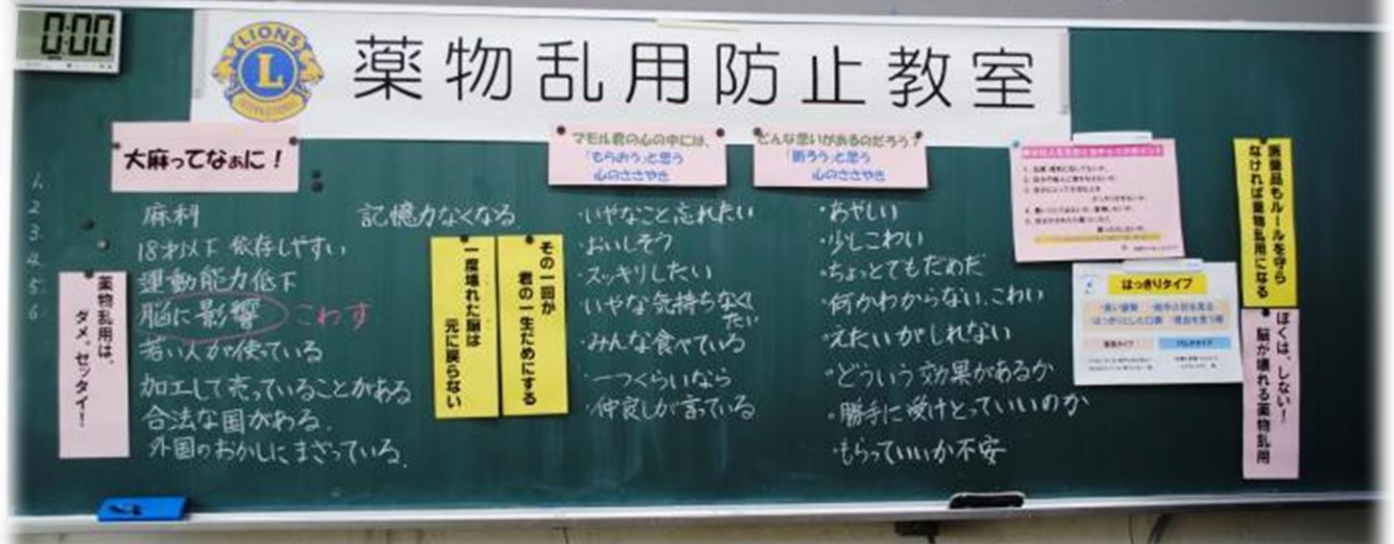 0:00
LIONS
L
INTERNATIONAL
薬物乱用防止教室
大麻ってなぁに!
1.
2.
3.
4.
5.
6.
麻科
記憶力なくなる
18才以下 依存しやすい
運動能力低下
脳に影響 こわす
若い人が使っている
加工して売っていることがある
合法な国がある.
外国のおかしにまざっている.
薬物乱用は、
ダメ。ゼッタイ!
その一回が
君の一生だめにする
一度壊れた脳は
元に戻らない
マモル君の心の中には、
「もらおう」と思う
心のささやき
・いやなこと忘れたい
・おいしそう
・スッキリしたい
・いやな気持ちなくし
たい
・みんな食べている
・一つくらいなら
・仲良しが言っている
どんな思いがあるのだろう?
「断ろう」と思う
心のささやき
・あやしい
・少しこわい
・ちょっとでもだめだ
・何かわからない、こわい
・えたいがしれない
・どういう効果があるか
・勝手に受けとっていいのか
・もらっていいか不安
はっきりタイプ
医薬品もルールを守ら
なければ薬物乱用になる
ぼくは、しない!
脳が壊れる薬物乱用